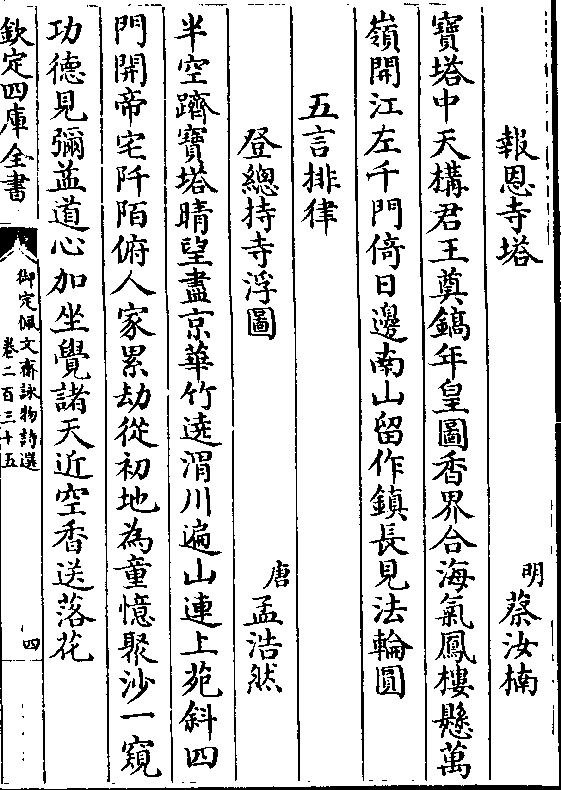 報恩寺塔
明 蔡汝楠
寶塔中天構君王奠鎬年皇圖香界合海氣鳳樓懸萬
嶺開江左千門倚日邊南山留作鎮長見法輪圓
五言排律
登總持寺浮圖
唐 孟浩然
半空躋寶塔晴望盡京華竹遶渭川遍山連上苑斜四
門開帝宅阡陌俯人家累劫從初地為童憶聚沙一窺
功德見彌益道心加坐覺諸天近空香送落花
欽定四庫全書
御定佩文齋詠物詩選
卷二百三十五
四